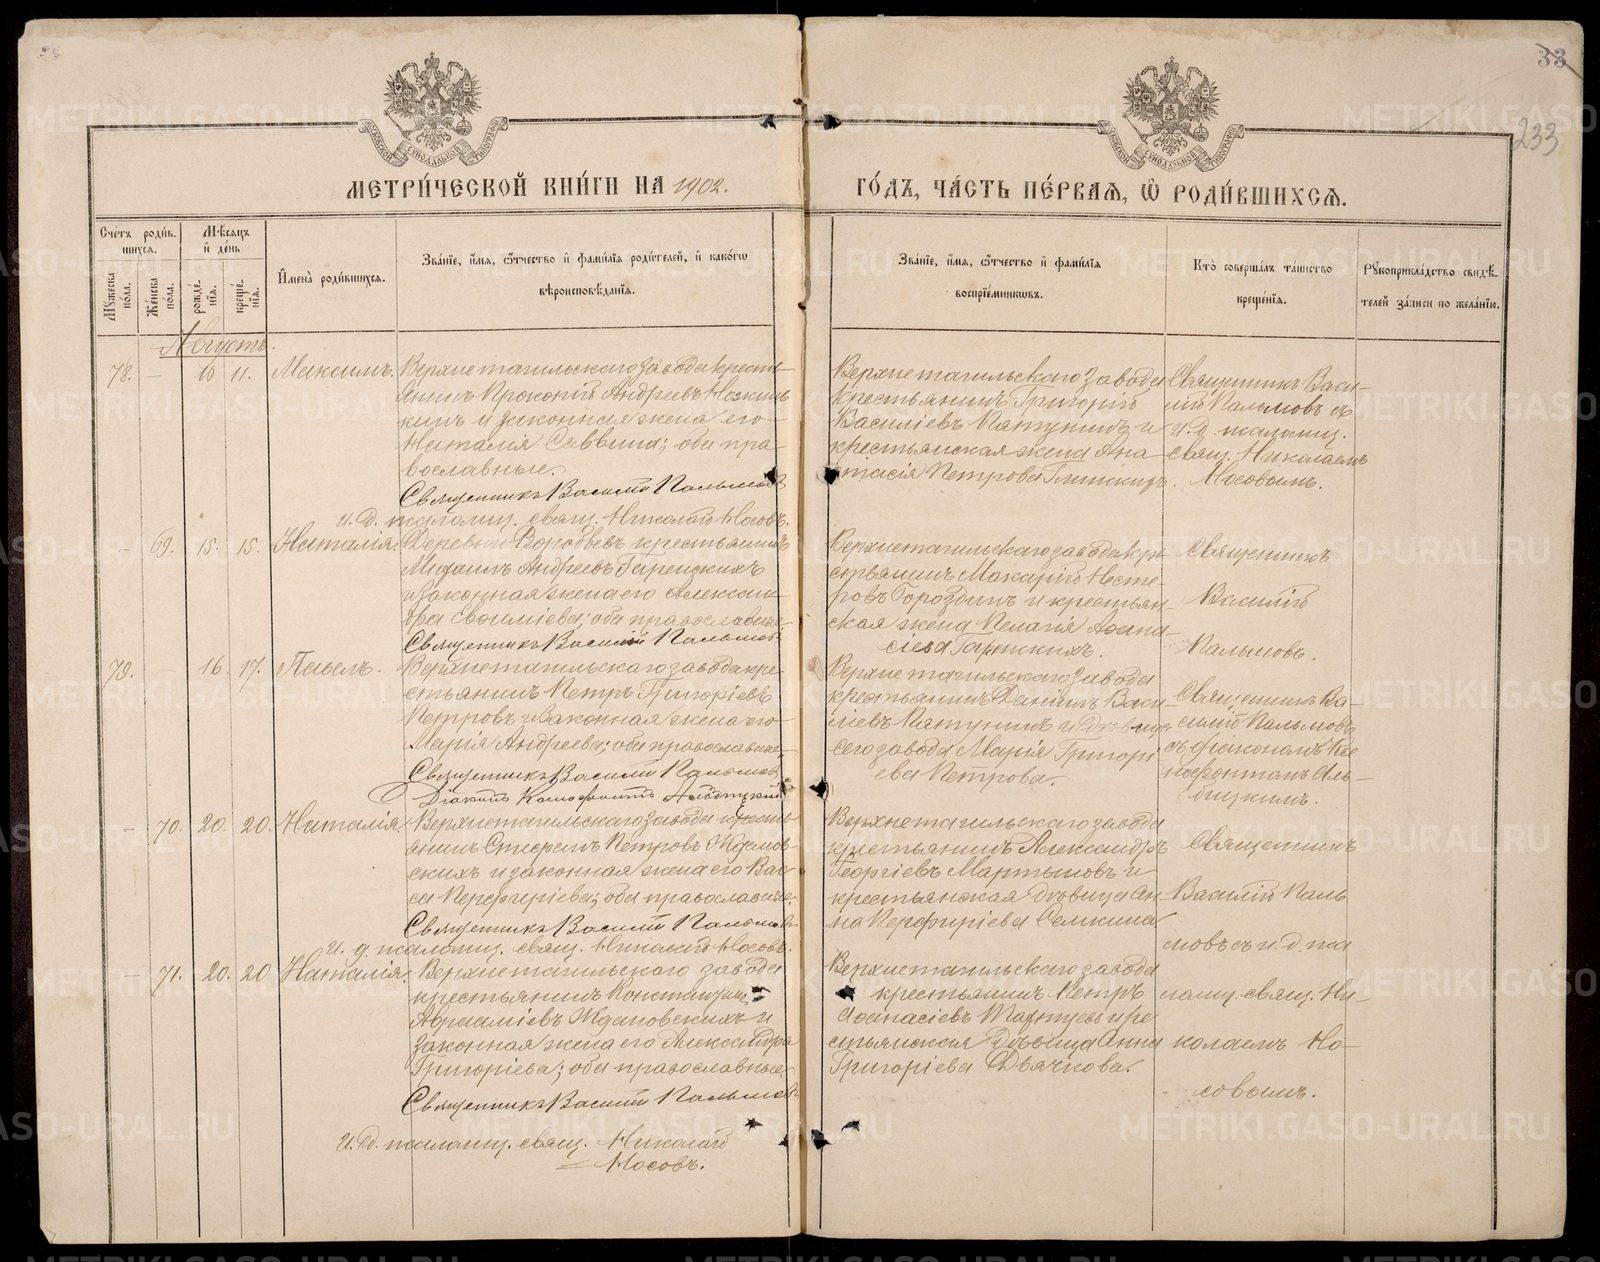 33
233
МЕТРИ́ЧЕСКОЙ КНИ́ГИ НА 1902.
ГО́ДЪ, ЧА́СТЬ ПЕ́РВАѦ, Ѡ҆ РОДИ́ВШИХСѦ.
Сче́тъ роди́в-
шихсѧ.
Мꙋжеска по́ла.
Же́нска по́ла.
Мѣ́сѧцъ и де́нь
рожде́нїѧ.
креще́нїѧ.
Имена̀ роди́вшихсѧ.
Зва́нїе, и́мѧ, ѻ҆́тчество и фами́лїѧ роди́телей, и како́гѡ
вѣроисповѣ́данїѧ.
Зва́нїе, и́мѧ, ѻ҆́тчество и фами́лїѧ
воспрїе́мникѡвъ.
Кто̀ соверша́лъ та́инство
креще́нїѧ.
Рꙋкоприкла́дство свидѣ́-
телей за́писи по жела́нїю.
Августъ.
78. — 10 11. Максимъ.
Верхнетагильскаго завода кресть-
янинъ Прокопій Андреевъ
и законная жена его
Наталія Саввина; оба пра-
вославные.
Священникъ Василій Пальмовъ
и. д. псаломщ. свящ. Николай Носовъ.
Верхнетагильскаго завода
крестьянинъ Григорій
Василіевъ Пятунинъ и
крестьянская жена Ана-
стасія Петрова
Священникъ Васи-
лій Пальмовъ съ
и. д. псаломщ.
свящ. Николаемъ
Носовымъ.
— 69. 15. 15. Наталія.
Деревни Воробьевъ крестьянинъ
Михаилъ Андреевъ Гаренскихъ
и законная жена его Алексан-
дра Евфиміева; оба православные.
Священникъ Василій Пальмовъ
Верхнетагильскаго завода кре-
стьянинъ Макарій Несте-
ровъ Гороздинъ и крестьян-
ская жена Пелагія Аѳана-
сіева Гаренскихъ.
Священникъ
Василій
Пальмовъ.
79. 16. 17. Павелъ.
Верхнетагильскаго завода кре-
стьянинъ Петръ Григоріевъ
Петровъ и законная жена его
Марія Андреева; оба православные
Священникъ Василій Пальмовъ
Діаконъ Ксенофонтъ
Верхнетагильскаго завода
крестьянинъ Даніилъ Васи-
ліевъ Пятунинъ и дѣвица
сего завода Марія Григорі-
ева Петрова.
Священникъ Ва-
силій Пальмовъ
съ діакономъ Ксе-
нофонтомъ
— 70. 20. 20. Наталія.
Верхнетагильскаго завода кресть-
янинъ Стефанъ Петровъ Ждановс-
скихъ и законная жена его Вас-
са Перфиріева; оба православные.
Священникъ Василій Пальмовъ
и. д. псаломщ. свящ. Николай Носовъ.
Верхнетагильскаго завода
крестьянинъ Александръ
Георгіевъ Мартыновъ и
крестьянская дѣвица Ан-
на Перфиріева Селкина
Священникъ
Василій Паль
мовъ съ и. д. пса
— 71. 20. 20 Наталія.
Верхнетагильскаго завода
крестьянинъ Константинъ
Авраміевъ Ждановскихъ и
законная жена его Александра
Григоріева; оба православные.
Священникъ Василій Пальмовъ
и. д. псаломщ. свящ. Николай
Носовъ.
Верхнетагильскаго завода
крестьянинъ Петръ
Аѳанасіевъ и кре
стьянская дѣвица Анна
Григоріева Дьячкова.
ломщ. свящ. Ни-
колаемъ Но-
совымъ.